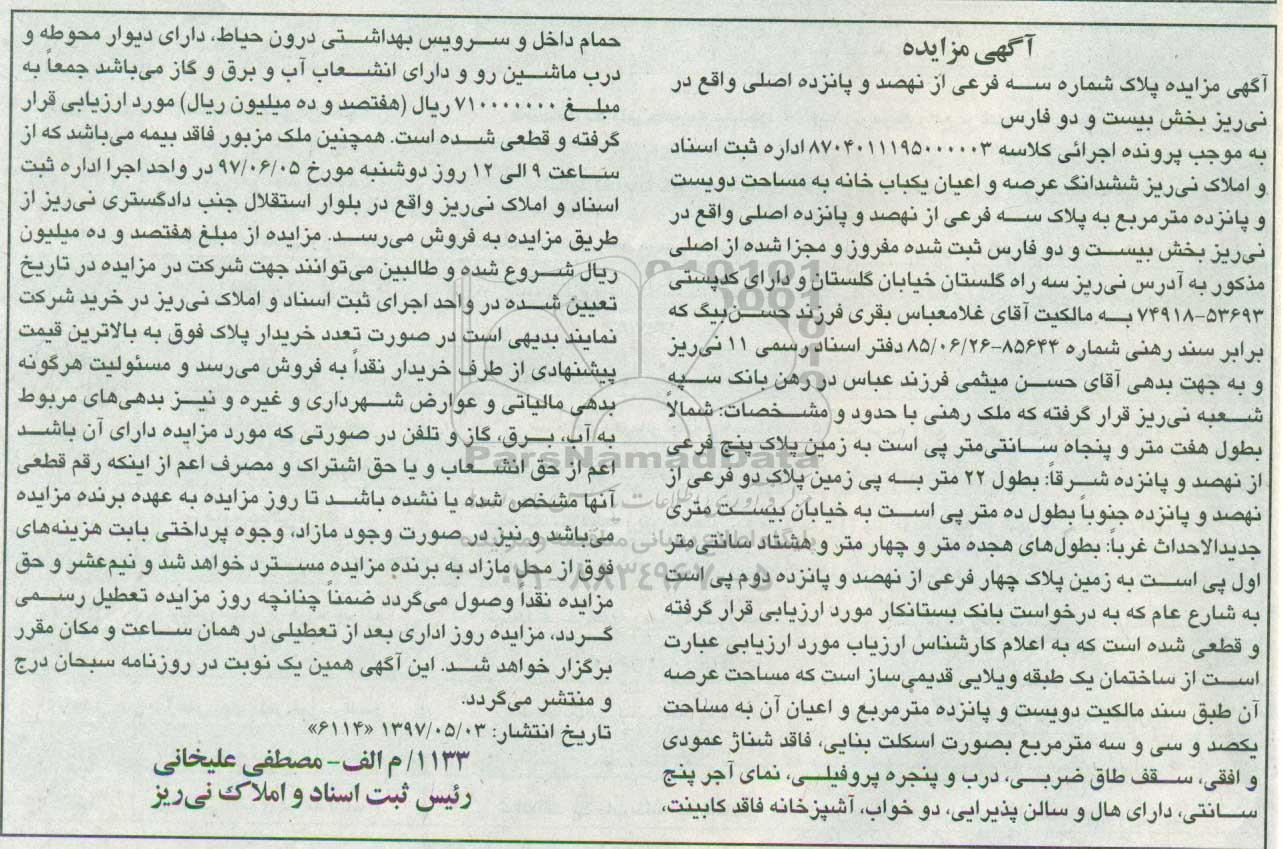 آگهی مزایده
آگهی مزایده پلاک شماره سه فرعی از نهصد و پانزده اصلی واقع در
نی‌ریز بخش بیست و دو فارس
به موجب پرونده اجرائی کلاسه ۸۷۰۴۰۱۱۱۹۵۰۰۰۰۰۳ اداره ثبت اسناد
و املاک نی‌ریز ششدانگ عرصه و اعیان یکباب خانه به مساحت دویست
و پانزده مترمربع به پلاک سه فرعی از نهصد و پانزده اصلی واقع در
نی‌ریز بخش بیست و دو فارس ثبت شده مفروز و مجزا شده از اصلی
مذکور به آدرس نی‌ریز سه راه گلستان خیابان گلستان و دارای کدپستی
۷۴۹۱۸-۵۳۶۹۳ به مالکیت آقای غلامعباس بقری فرزند حسن‌بیگ که
برابر سند رهنی شماره ۸۵۶۴۴-۸۵/۰۶/۲۶ دفتر اسناد رسمی ۱۱ نی‌ریز
و به جهت بدهی آقای حسن میثمی فرزند عباس در رهن بانک سپه
شعبه نی‌ریز قرار گرفته که ملک رهنی با حدود و مشخصات: شمالاً
بطول هفت متر و پنجاه سانتی‌متر پی است به زمین پلاک پنج فرعی
از نهصد و پانزده شرقاً: بطول ۲۲ متر به پی زمین پلاک دو فرعی از
نهصد و پانزده جنوباً بطول ده متر پی است به خیابان بیست متری
جدیدالاحداث غرباً: بطول‌های هجده متر و چهار متر و هشتاد سانتی‌متر
اول پی است به زمین پلاک چهار فرعی از نهصد و پانزده دوم پی است
به شارع عام که به درخواست بانک بستانکار مورد ارزیابی قرار گرفته
و قطعی شده است که به اعلام کارشناس ارزیاب مورد ارزیابی عبارت
است از ساختمان یک طبقه ویلایی قدیمی‌ساز است که مساحت عرصه
آن طبق سند مالکیت دویست و پانزده مترمربع و اعیان آن به مساحت
یکصد و سی و سه مترمربع بصورت اسکلت بنایی، فاقد شناژ عمودی
و افقی، سقف طاق ضربی، درب و پنجره پروفیلی، نمای آجر پنج
سانتی، دارای هال و سالن پذیرایی، دو خواب، آشپزخانه فاقد کابینت،
حمام داخل و سرویس بهداشتی درون حیاط، دارای دیوار محوطه و
درب ماشین رو و دارای انشعاب آب و برق و گاز می‌باشد جمعاً به
مبلغ ۷۱۰۰۰۰۰۰۰ ریال (هفتصد و ده میلیون ریال) مورد ارزیابی قرار
گرفته و قطعی شده است. همچنین ملک مزبور فاقد بیمه می‌باشد که از
ساعت ۹ الی ۱۲ روز دوشنبه مورخ ۹۷/۰۶/۰۵ در واحد اجرا اداره ثبت
اسناد و املاک نی‌ریز واقع در بلوار استقلال جنب دادگستری نی‌ریز از
طریق مزایده به فروش می‌رسد. مزایده از مبلغ هفتصد و ده میلیون
ریال شروع شده و طالبین می‌توانند جهت شرکت در مزایده در تاریخ
تعیین شده در واحد اجرای ثبت اسناد و املاک نی‌ریز در خرید شرکت
نمایند بدیهی است در صورت تعدد خریدار پلاک فوق به بالاترین قیمت
پیشنهادی از طرف خریدار نقداً به فروش می‌رسد و مسئولیت هرگونه
بدهی مالیاتی و عوارض شهرداری و غیره و نیز بدهی‌های مربوط
به آب، برق، گاز و تلفن در صورتی که مورد مزایده دارای آن باشد
اعم از حق انشعاب و یا حق اشتراک و مصرف اعم از اینکه رقم قطعی
آنها مشخص شده یا نشده باشد تا روز مزایده به عهده برنده مزایده
می‌باشد و نیز در صورت وجود مازاد، وجوه پرداختی بابت هزینه‌های
فوق از محل مازاد به برنده مزایده مسترد خواهد شد و نیم‌عشر و حق
مزایده نقداً وصول می‌گردد ضمناً چنانچه روز مزایده تعطیل رسمی
گردد، مزایده روز اداری بعد از تعطیلی در همان ساعت و مکان مقرر
برگزار خواهد شد. این آگهی همین یک نوبت در روزنامه سبحان درج
و منتشر می‌گردد.
تاریخ انتشار: ۱۳۹۷/۰۵/۰۳ «۶۱۱۴»
۱۱۳۳/م الف- مصطفی علیخانی
رئیس ثبت اسناد و املاک نی‌ریز
ParsNamadData
۰۲۱-۸۸۳۴۹۶۷۰-۵